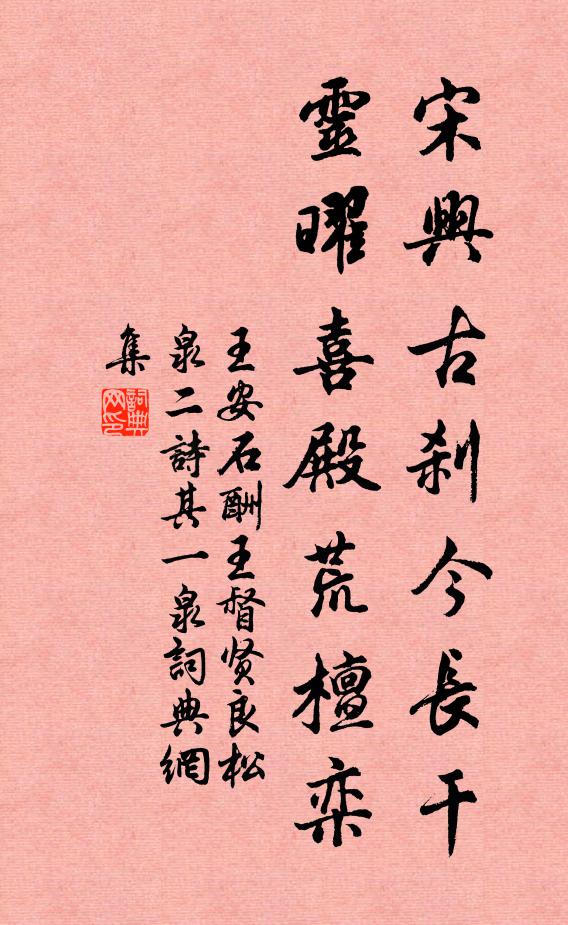 宋興古刹今長干
靈曜喜殿荒檀栾
王安石酬王督贤良松
泉二詩其一泉詞典網
集
詞典网印